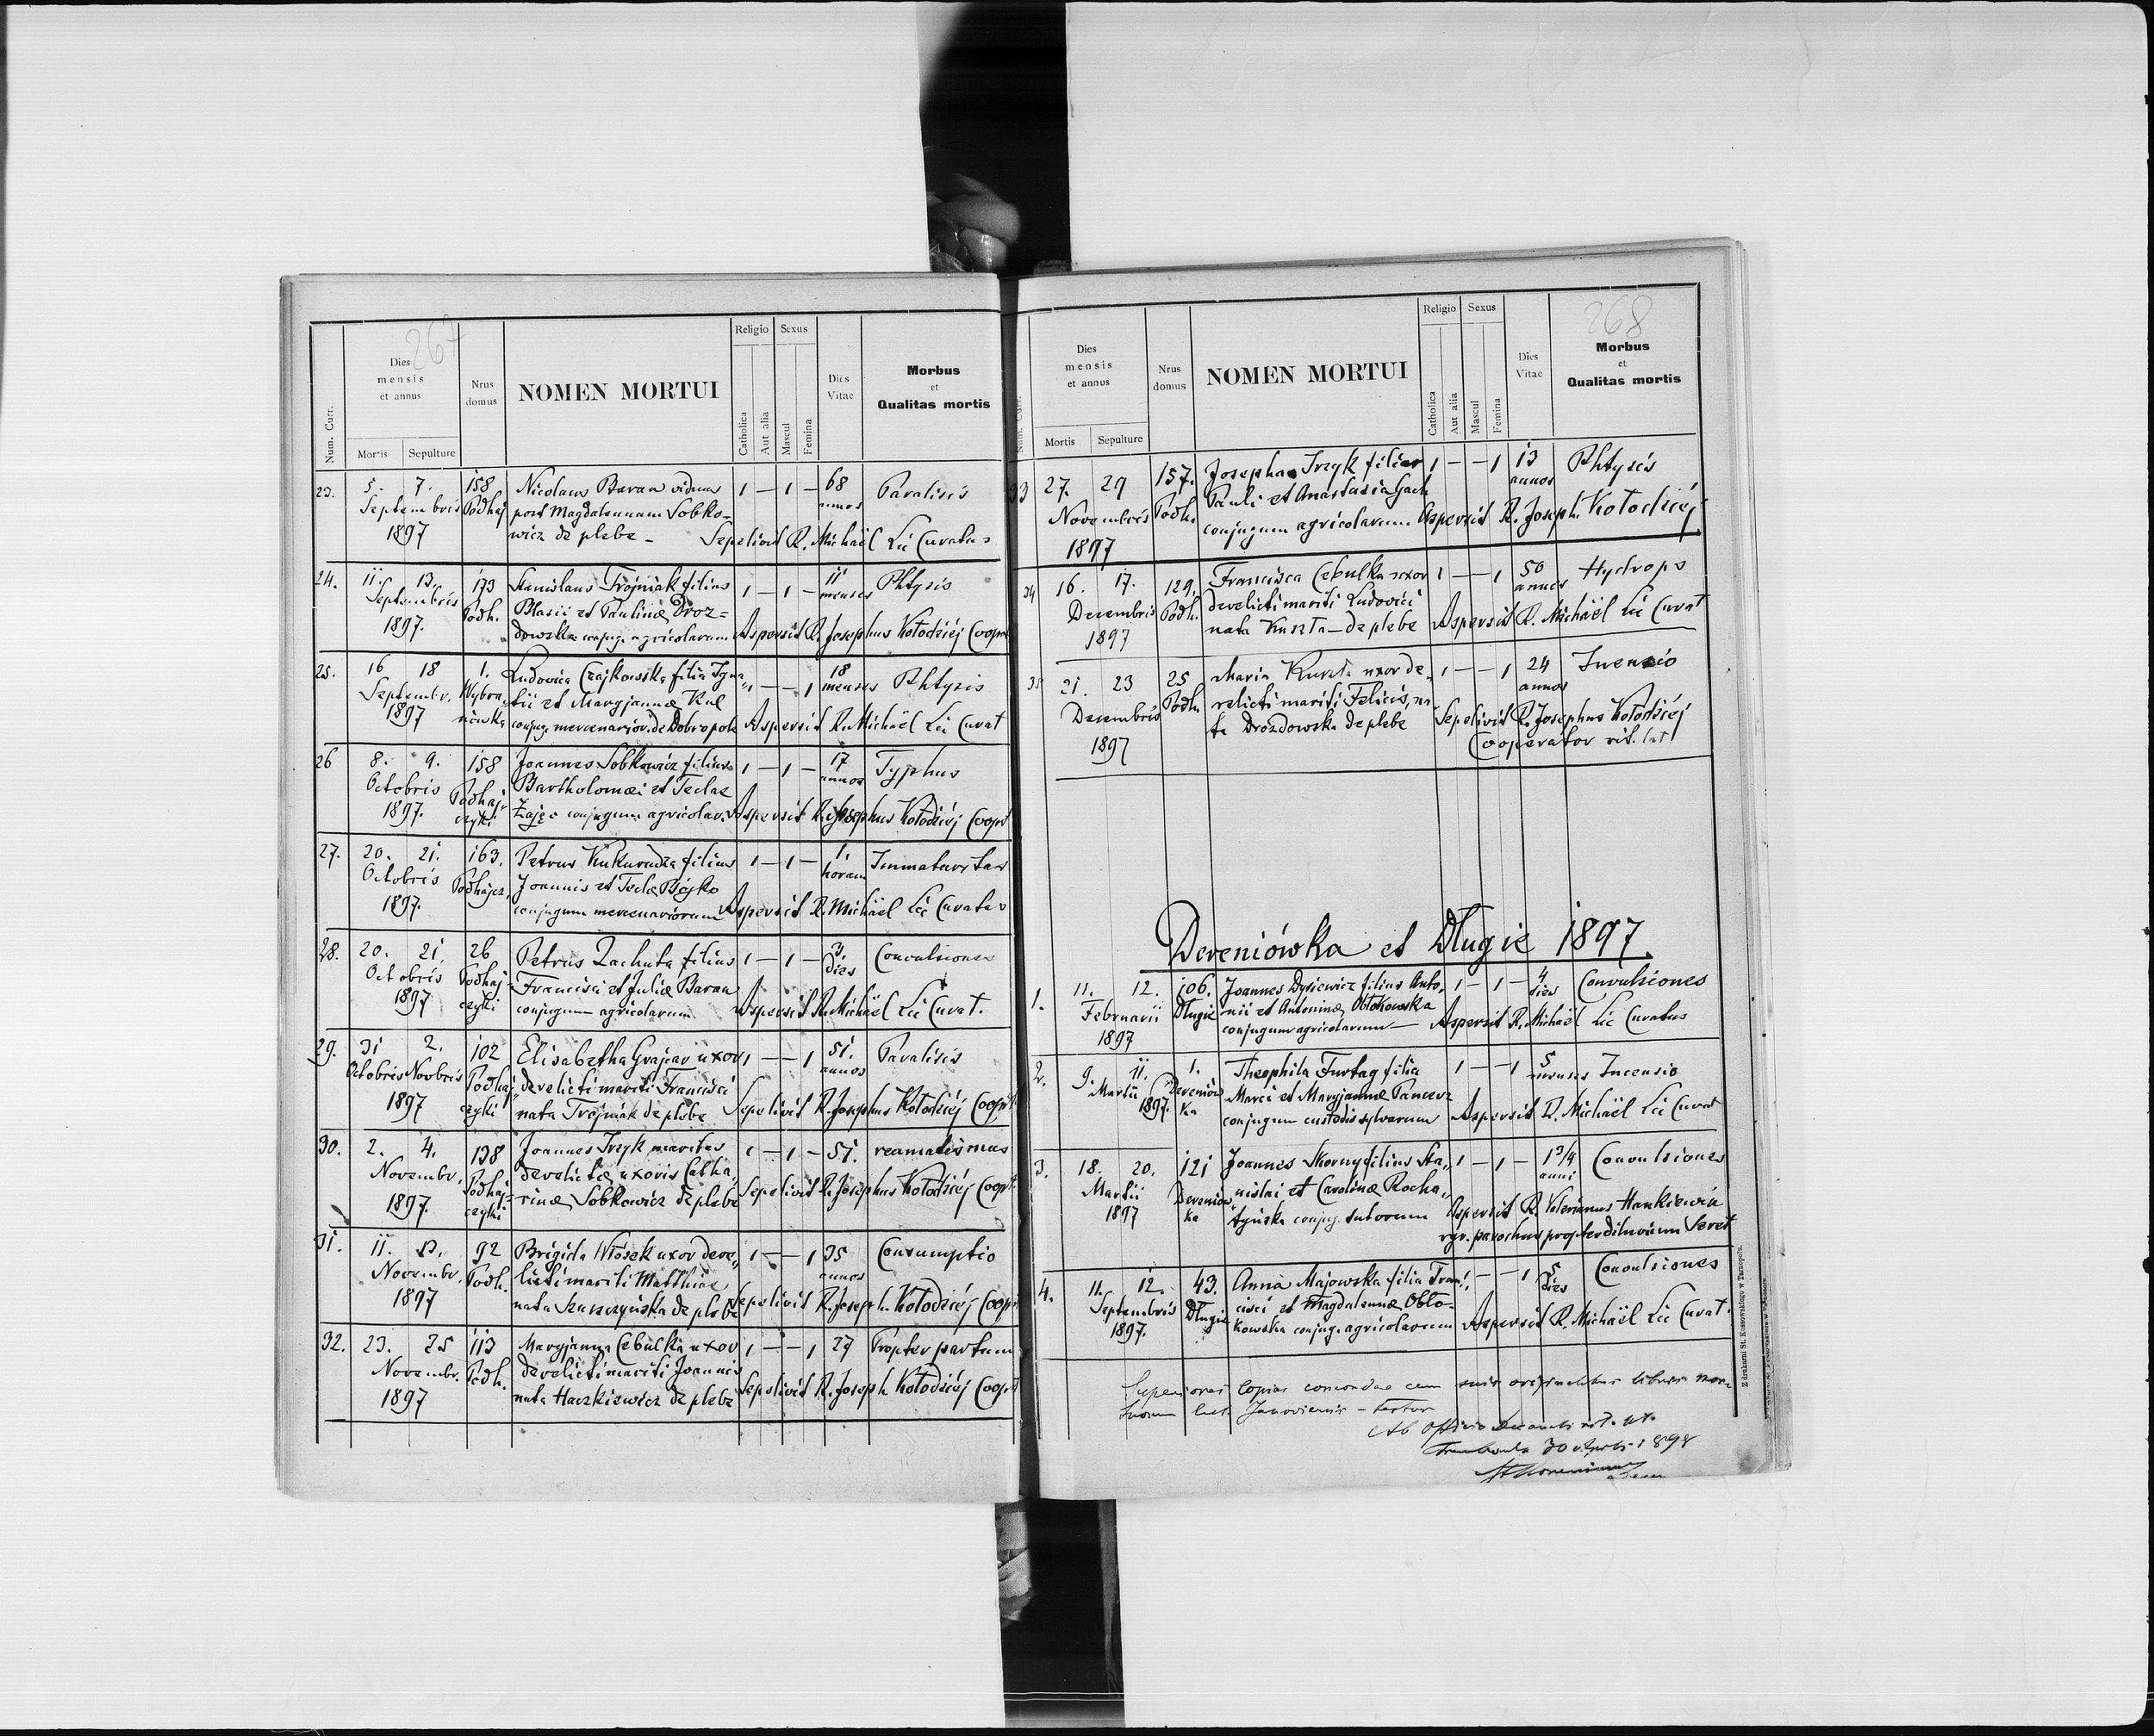 267
Num. Curr.
Dies mensis et annus
Mortis
Sepulture
Nrus domus
NOMEN MORTUI
Religio
Catholica
Aut alia
Sexus
Mascul
Femina
Dies Vitae
Morbus et Qualitas mortis
23. 5. 7. 158 Nicolaus Baran viduus 1 — 1 — 68 Paralisis
Septembris Podhaj post Magdalenam Sobko- annos
1897 wicz de plebe - Sepelivit R. Michaël Lic Curatus
24. 11. 13. 173 Stanislaus Trojniak filius 1 — 1 — 11 Phtysis
Septembris Podh. Blasii et Paulinæ Droz- menses
1897. dowska conjug. agricolarum Aspersit R. Josephus Kołodziéj Coop
25. 16 18 1. Ludovica Czajkowska filia Igna- 1 — — 1 18 Phtysis
Septembr. Wybra- tii et Maryjannæ Kul menses
1897 nówka conjug. mercenarior. de Dobropole Aspersit R. Michaël Lic Curat
26 8. 9. 158 Joannes Sobkowicz filius 1 — 1 — 17 Typhus
Octobris Podhaj- Bartholomæi et Teclae annos
1897. czyki Zając conjugum agricolar. Aspersit R. Josephus Kołodziéj Coopt
27. 20. 21. 163. Petrus Kukurudza filius 1 — 1 — 1. Immaturitas
Octobris Podhajcz. Joannis et Teclæ Bojko horam
1897. conjugum mercenariorum Aspersit R. Michaël Lic Curatus
28. 20. 21. 26 Petrus Zachuta filius 1 — 1 — 3. Convulsiones
Octobris Podhaj- Francisci et Juliæ Baran dies
1897 czyki conjugum agricolarum Aspersit R. Michaël Lic Curat.
29. 31 2. 102 Elisabetha Grajcar uxor 1 — — 1 51. Paralisis
Octobris Novbris Podhaj- derelicti mariti Francisci annos
1897 czyki nata Trojniak de plebe Sepelivit R. Josephus Kołodziéj Coopt
30. 2. 4. 138 Joannes Irzyk maritus 1 — 1 — 51. reamatismus
Novembr. Podhaj- derelictæ uxoris Catha-
1897. czyki rinæ Sobkowicz de plebe Sepelivit R. Josephus Kołodziéj Coopt.
31. 11. 13. 92 Brigida Włosek uxor dere- 1 — — 1 35 Consumptio
Novembr. Podh. licti mariti Matthiae annos
1897 nata Szaszczyńska de plebe Sepelivit R. Joseph. Kołodziéj Coopt
32. 23. 25 113 Maryjanna Cebulka uxor 1 — — 1 27 Propter partum
Novembr. Podh. derelicti mariti Joannis
1897 nata Haczkiewicz de plebe Sepelivit R. Joseph. Kołodziéj Coopt
268
Num. Curr.
Dies mensis et annus
Mortis
Sepulture
Nrus domus
NOMEN MORTUI
Religio
Catholica
Aut alia
Sexus
Mascul
Femina
Dies Vitae
Morbus et Qualitas mortis
33 27. 29 157. Josepha Irzyk filia 1 — — 1 13 Phtysis
Novembris Podh. Pauli et Anastasia Gach annos
1897 conjugum agricolarum Aspersit R. Joseph. Kołodziéj
34 16. 17. 129. Francisca Cebulka uxor 1 — — 1 50 Hydrops
Decembris Podh. derelicti mariti Ludovici annos
1897 nata Kuszta — de plebe Aspersit R. Michaël Lic Curat
35 21. 23 25 Maria Kurata uxor de- 1 — — 1 24 Incensio
Decembris Podh. relicti mariti Felicis, na- annos
1897 ta Drozdowska de plebe Sepelivit R. Josephus Kołodziéj
Cooperator rit. lat
Dereniówka et Długie 1897.
1. 11. 12. 106. Joannes Dysiewicz filius Anto- 1 — 1 — 4 Convulsiones
Februarii Długie nii et Antoninæ Obłokowska dies
1897 conjugum agricolarum — Aspersit R. Michaël Lic Curatus
2. 9. 11. 1. Theophila Furtag filia 1 — — 1 5 Incensio
Martii Dereniów- Marci et Maryjannæ Pancerz menses
1897. ka conjugum custodis sylvarum Aspersit R. Michaël Lic Curat
3. 18. 20. 121 Joannes Skorny filius Sta- 1 — 1 — 1 3/4 Convulsiones
Martii Dereniów- nislai et Carolinæ Rocha- anni
1897 ka tyńska conjug. sutorum Aspersit R. Valerianus Hankiewicz
rgr. parochus propter diluvium Seret
4. 11. 12. 43. Anna Majowska filia Fran- 1 — — 1 5 Convulsiones
Septembris Długie cisci et Magdalennæ Obło- dies
1897. kowska conjug. agricolarum Aspersit R. Michaël Lic Curat.
copias cum suis originalibus libris mor-
tuorum
Ab officio
1898
Z drukarni St. Kossowskiego w Tarnopolu.